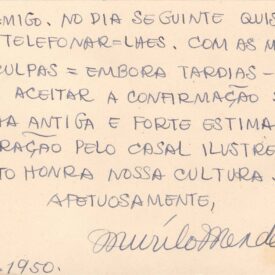 MIGO. NO DIA SEGUINTE QUIS
TELEFONAR=LHES. COM AS M
CULPAS = EMBORA TARDIAS -
ACEITAR A CONFIRMAÇÃO
HA ANTIGA E FORTE ESTIMA
RAÇÃO PELO CASAL ILUSTRE
TO HONRA NOSSA CULTURA.
AFETUOSAMENTE,
Murilo Mende
1950.